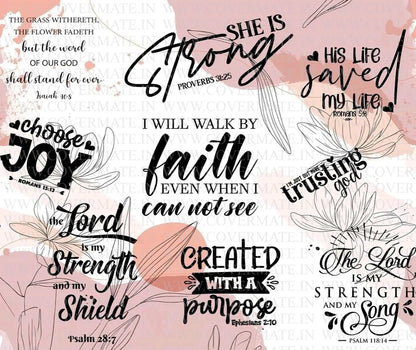 THE GRASS WITHERETH,
THE FLOWER FADETH
but the word
OF OUR GOD
shall stand for ever.
Isaiah 40:8
SHE IS
Strong
PROVERBS 31:25
HIS LIFE
saved
MY LIFE
Romans 5:8
choose
JOY
ROMANS 15:13
I WILL WALK BY
faith
EVEN WHEN I
can not see
trusting
god
the Lord
is my
Strength
and my
Shield
Psalm 28:7
CREATED
WITH A
purpose
Ephesians 2:10
The Lord
IS MY
STRENGTH
AND MY Song
PSALM 118:14
WWW.COVERMATE.IN